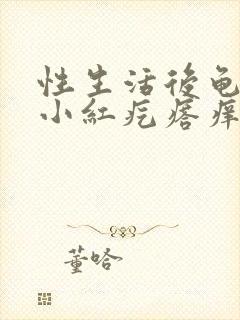 性生活後龟
小紅疙瘩痒
董哈